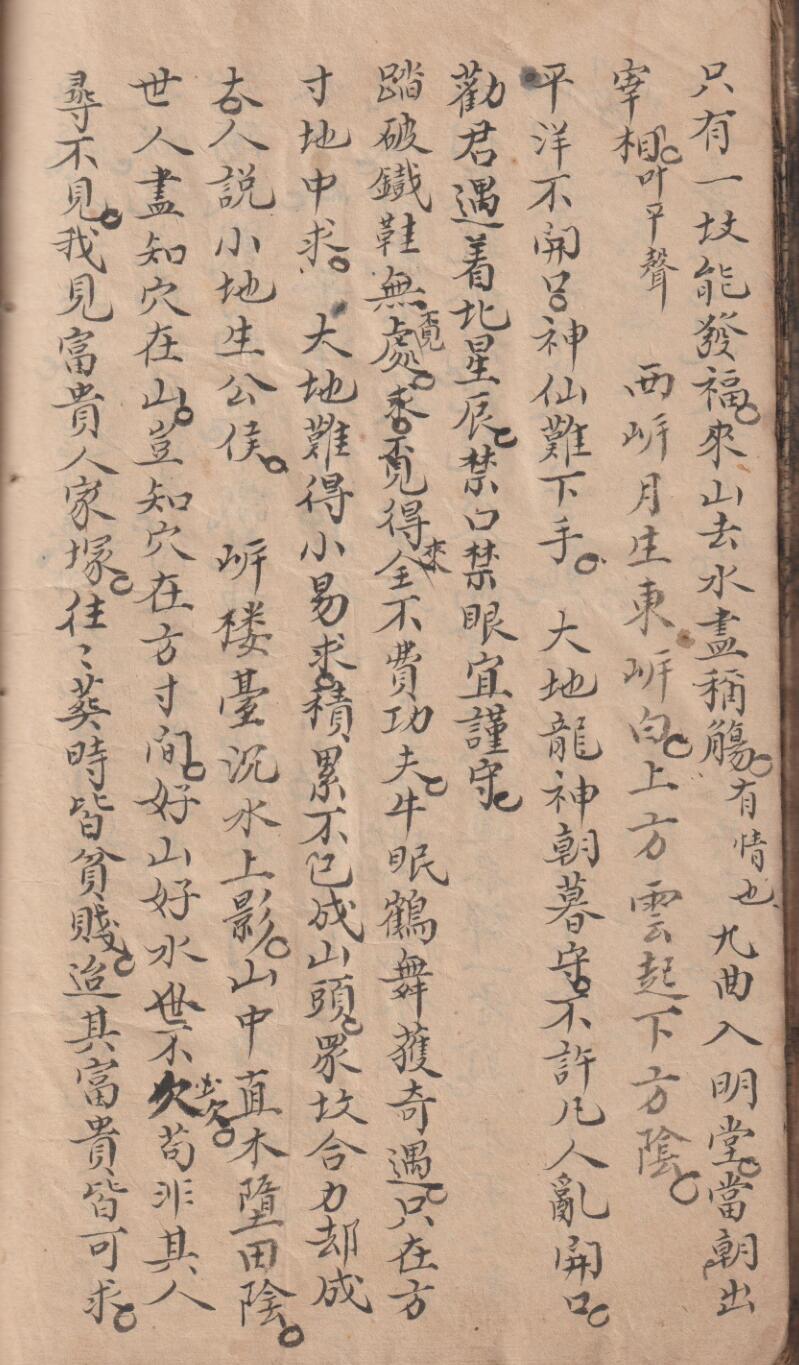 只有一坟能發福。來山去水盡稱觴。有情也、九曲入明堂。當朝出
宰相。叶平聲　西岍月生東岍白。上方雲起下方陰。
平洋不開口。神仙難下手。大地龍神朝暮守。不許凡人亂開口。
勸君遇着北星辰。禁口禁眼宜謹守。
踏破鐵鞋無覔處。來。覔得來全不費功夫。牛眠鶴舞獲奇遇。只在方
寸地中求。　大地難得小易求。積累不已成山頭。眾坟合力却成
大。人說小地生公侯。　岍楼臺沉水上影。山中直木墮田陰。
世人盡知穴在山。豈知穴在方寸间。好山好水世不欠。苟非其人
尋不見。我見富貴人家塚。往〻葬時皆貧賤。迨其富貴皆可求。